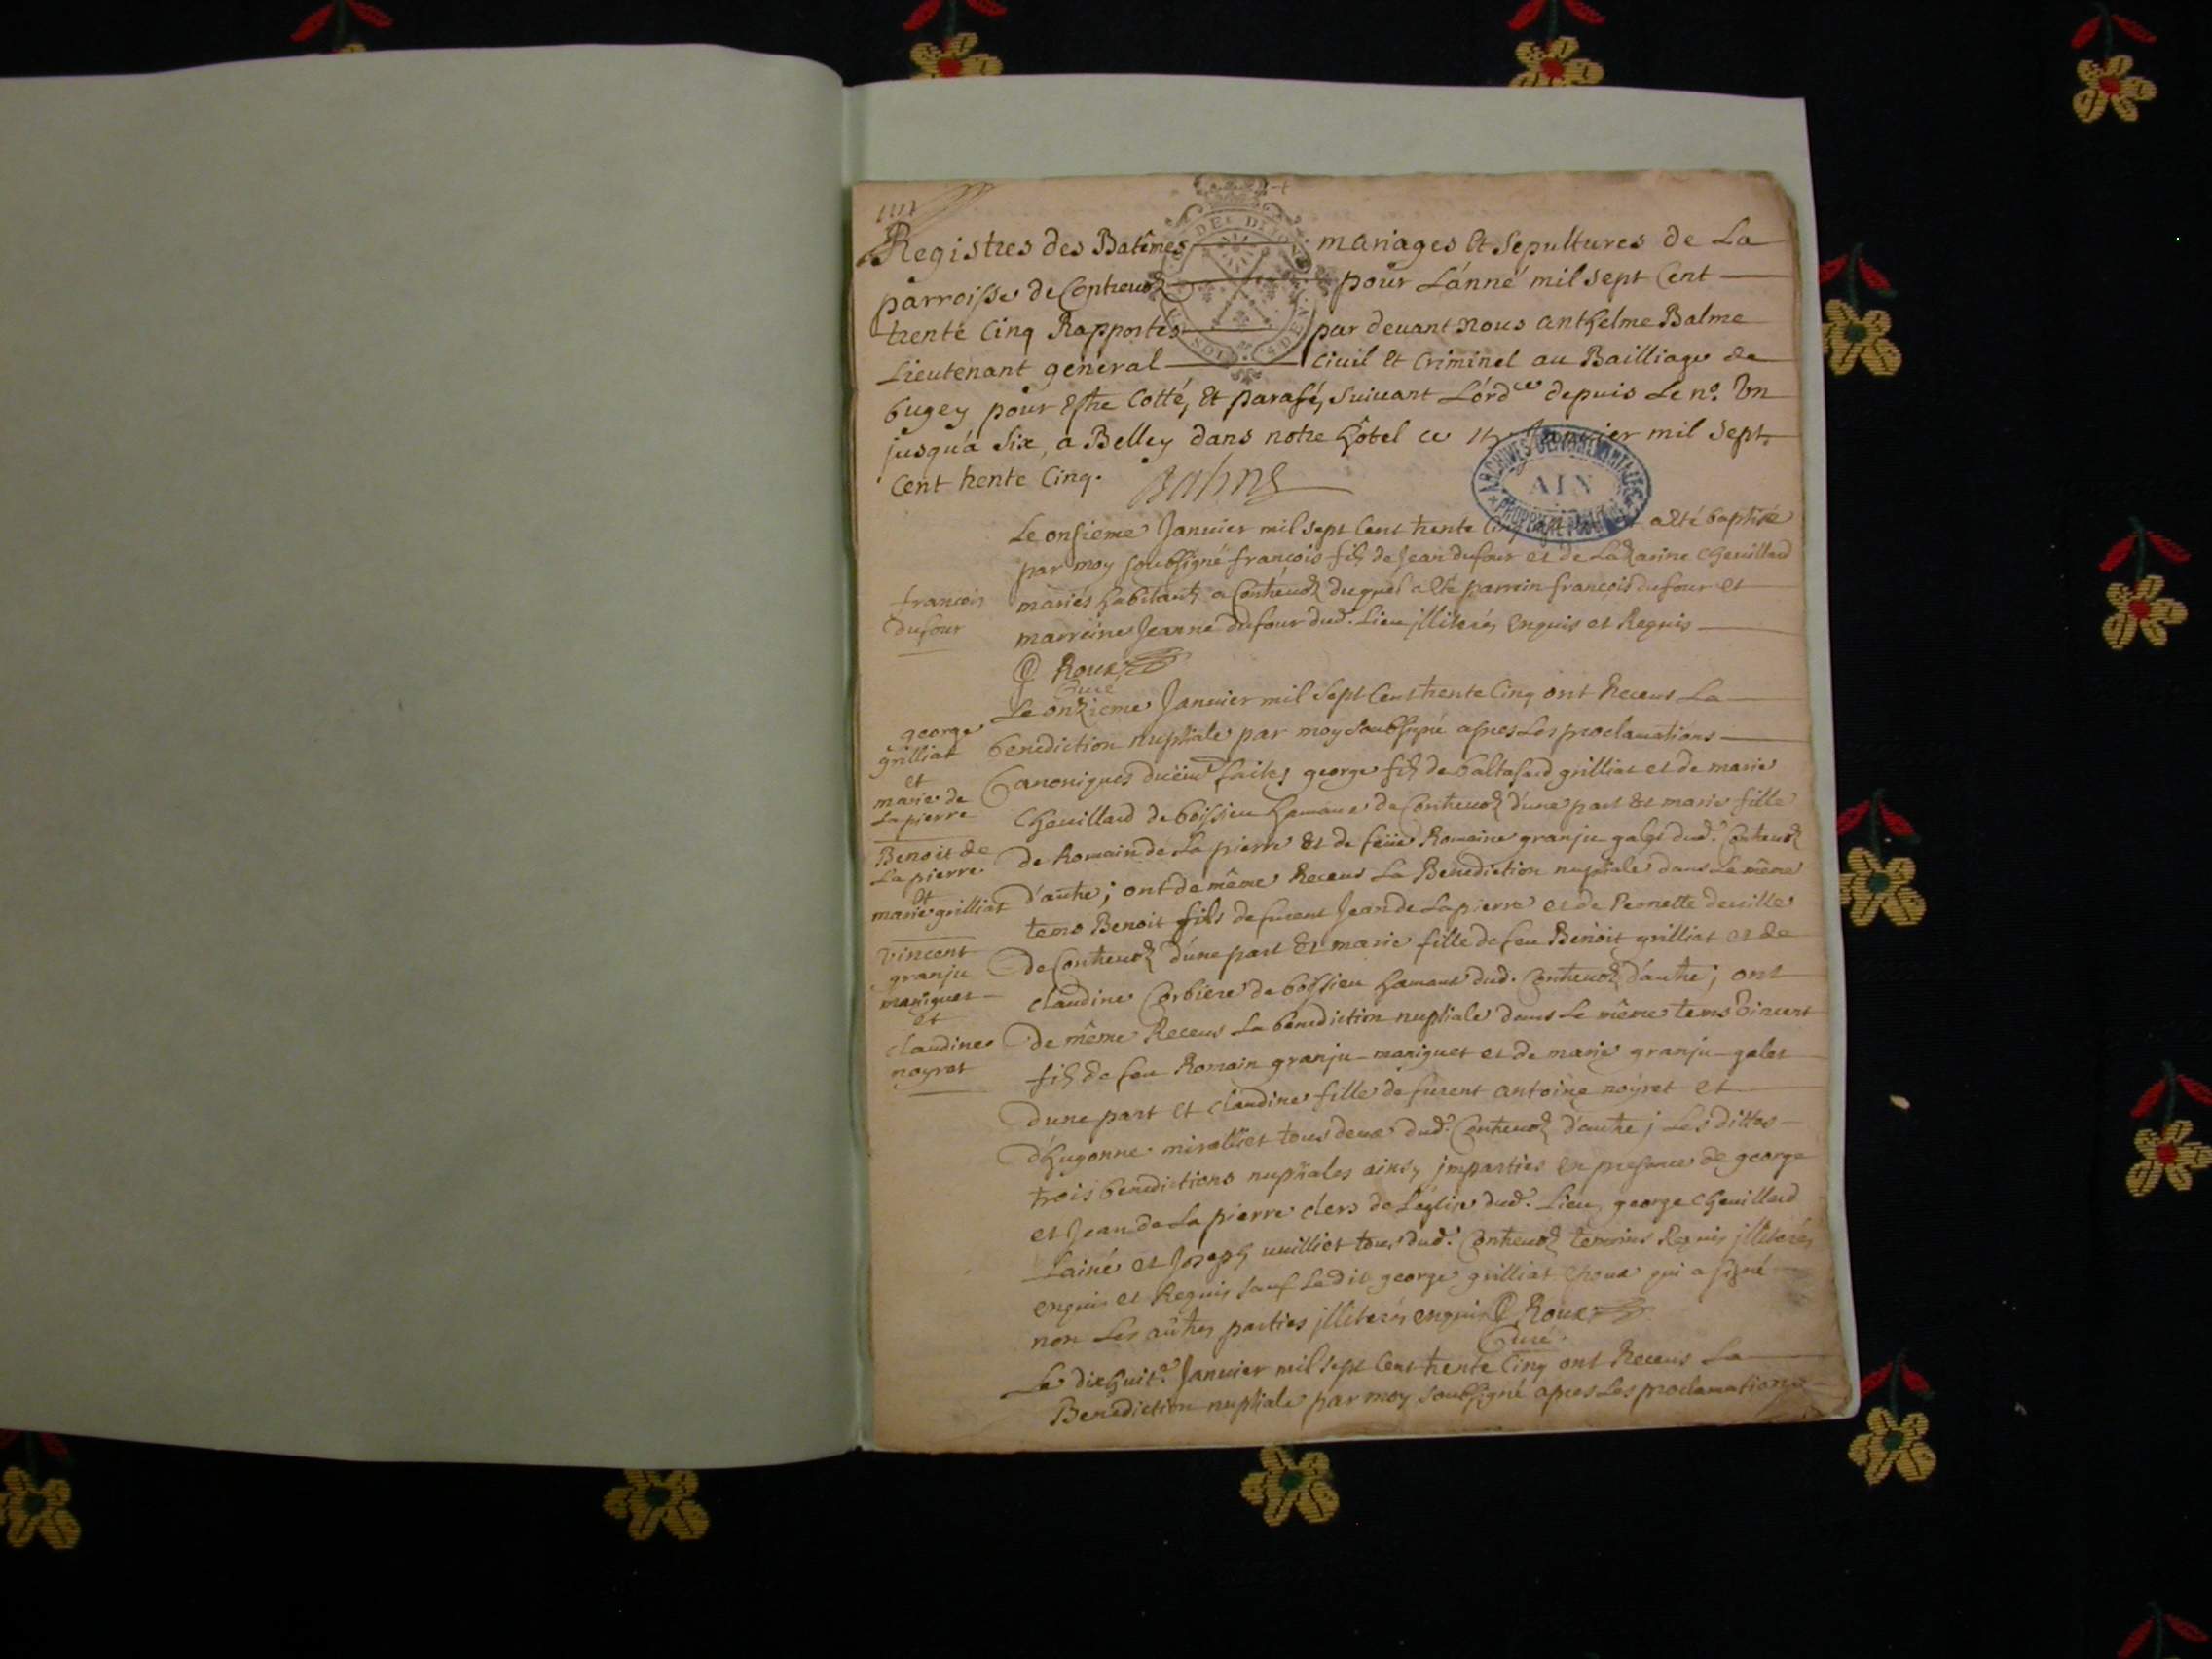 Registres des Batêmes mariages et Sepultures de La
parroisse de Contrevoz pour L'anné mil sept Cent
trente Cinq Rapportés par devant nous anthelme Balme
Lieutenant général Civil et Criminel au Bailliage de
bugey pour Estre Cotté, et parafé, Suivant L'ord.ce depuis Le n.o Un
jusqu'a Six, a Belley dans notre hôtel ce Janvier mil Sept
Cent trente Cinq. Balme
ARCHIVES DEPARTEMENTALES
AIN
PROPRIETE PUBLIQUE
Le onsieme Janvier mil sept Cent trente Cinq a eté baptisé
par moy soubsigné françois fils de Jean dufour et de Lazarine Chevillard
françois
dufour
mariés habitants a Contrevoz duquel a eté parrin françois dufour et
marreine Jeanne dufour dud. Lieu illiterés Enquis et Requis
Roux
Curé
Le onzieme Janvier mil Sept Cent trente Cinq ont Receus La
george
grilliat
et
marie de
Lapierre
benediction nuptiale par moy Soubsigné apres Les proclamations
Canoniques faites george fils de baltasard grilliat et de marie
Chevillard de boissieu hameau de Contrevoz d'une part et marie fille
Benoit de
Lapierre
et
marie grilliat
de Romain de La pierre et de feüe Romaine granju galet dud. Contrevoz
d'autre; ont de même Receus La Benediction nuptiale dans Le même
tems Benoit fils de furent Jean de Lapierre et de Pernette deville
vincent
granju
maniguet
et
claudine
noyret
de Contrevoz d'une part et marie fille de feu Benoit grilliat et de
claudine Corbiere de boissieu hameau dud. Contrevoz d'autre; ont
de même Receus La benediction nuptiale dans Le même tems vincent
fils de feu Romain granju-maniguet et de marie granju-galet
d'une part et claudine fille de furent antoine noyret et
d'hugonne tous deux dud. Contrevoz d'autre; Les dittes
trois benedictions nuptiales ainsy imparties en presence de george
et Jean de La pierre clers de L'eglise dud. Lieu, george Chevillard
Lainé et Joseph vuilliet tous dud. Contrevoz temoins Requis illiterés
enquis et Requis sauf Ledit george grilliat epoux qui a signé
non Les autres parties illiterés enquis Roux
Curé.
Le dixhuit.e Janvier mil sept Cent trente Cinq ont Receus La
Benediction nuptiale par moy soubsigné apres Les proclamations